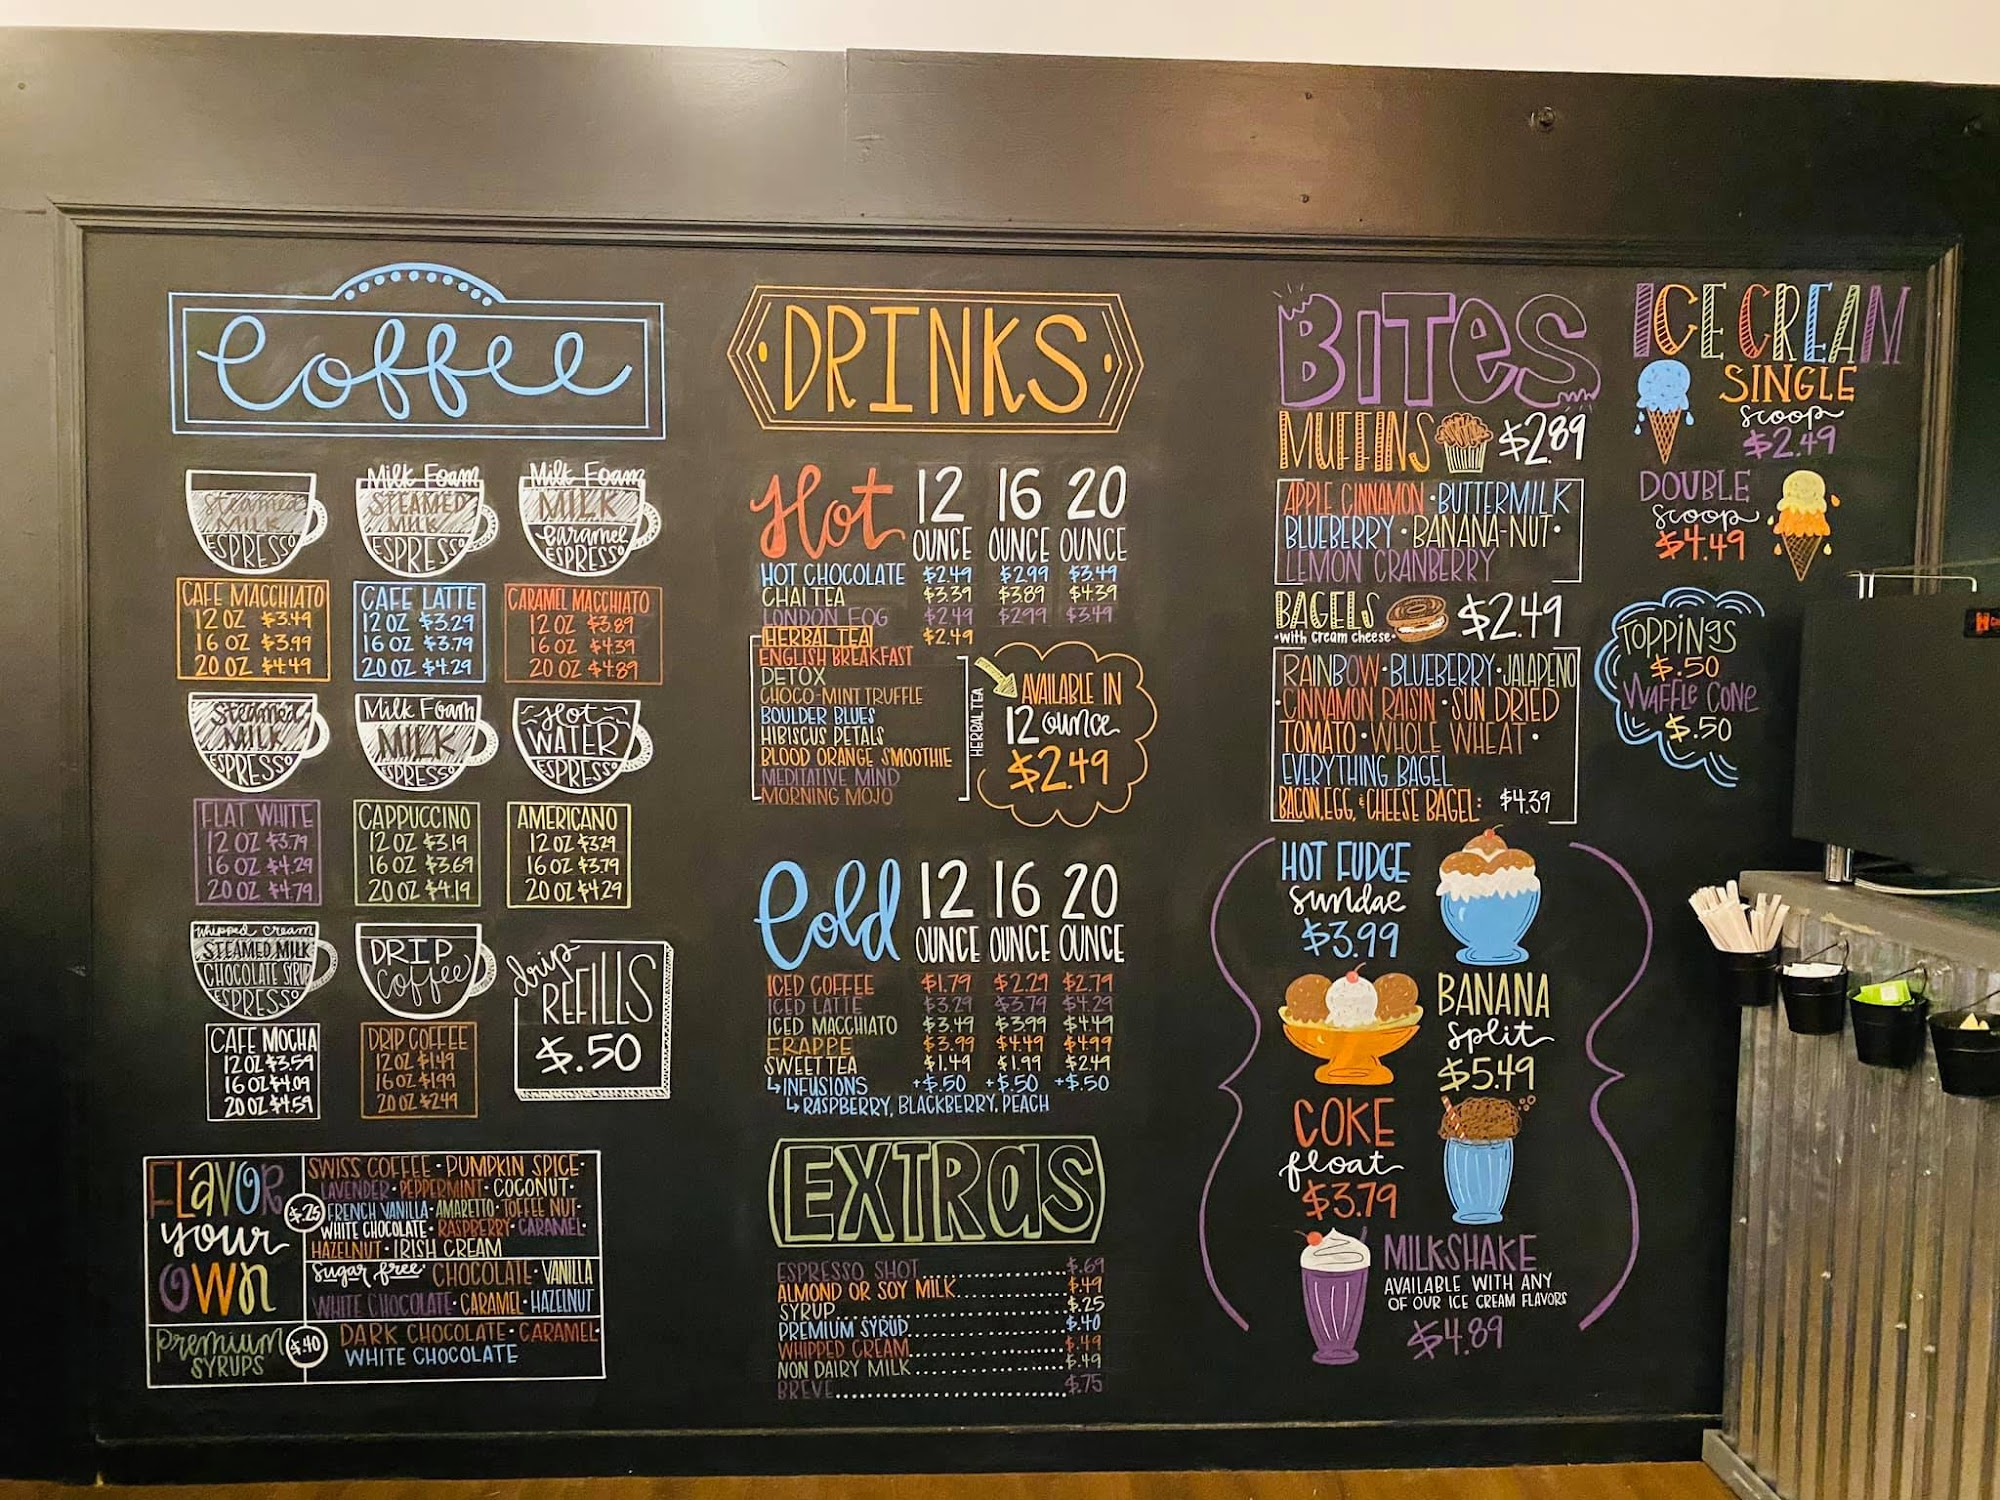 Coffee
Steamed
MILK
ESPRESSO
CAFE MACCHIATO
12 OZ $3.49
16 OZ $3.99
20 OZ $4.49
Milk Foam
STEAMED
MILK
ESPRESSO
CAFE LATTE
12 OZ $3.29
16 OZ $3.79
20 OZ $4.29
Milk Foam
MILK
Caramel
ESPRESSO
CARAMEL MACCHIATO
12 OZ $3.89
16 OZ $4.39
20 OZ $4.89
Steamed
MILK
ESPRESSO
FLAT WHITE
12 OZ $3.79
16 OZ $4.29
20 OZ $4.79
Milk Foam
MILK
ESPRESSO
CAPPUCCINO
12 OZ $3.19
16 OZ $3.69
20 OZ $4.19
Hot
WATER
ESPRESSO
AMERICANO
12 OZ $3.29
16 OZ $3.79
20 OZ $4.29
Whipped Cream
STEAMED MILK
CHOCOLATE SYRUP
ESPRESSO
CAFE MOCHA
12 OZ $3.59
16 OZ $4.09
20 OZ $4.59
DRIP
Coffee
DRIP COFFEE
12 OZ $1.49
16 OZ $1.99
20 OZ $2.49
drip
REFILLS
$.50
FLaVOR
your
OWn
$.25
SWISS COFFEE • PUMPKIN SPICE •
LAVENDER • PEPPERMINT • COCONUT •
FRENCH VANILLA • AMARETTO • TOFFEE NUT •
WHITE CHOCOLATE • RASPBERRY • CARAMEL •
HAZELNUT • IRISH CREAM
Sugar free: CHOCOLATE • VANILLA
WHITE CHOCOLATE • CARAMEL • HAZELNUT
Premium
SYRUPS
$.40
DARK CHOCOLATE • CARAMEL •
WHITE CHOCOLATE
DRINKS
Hot 12 OUNCE 16 OUNCE 20 OUNCE
HOT CHOCOLATE $2.49 $2.99 $3.49
CHAI TEA $3.39 $3.89 $4.39
LONDON FOG $2.49 $2.99 $3.49
HERBAL TEA $2.49
ENGLISH BREAKFAST
DETOX
CHOCO-MINT TRUFFLE
BOULDER BLUES
HIBISCUS PETALS
BLOOD ORANGE SMOOTHIE
MEDITATIVE MIND
MORNING MOJO
HERBAL TEA
AVAILABLE IN
12 ounce
$2.49
Cold 12 OUNCE 16 OUNCE 20 OUNCE
ICED COFFEE $1.79 $2.29 $2.79
ICED LATTE $3.29 $3.79 $4.29
ICED MACCHIATO $3.49 $3.99 $4.49
FRAPPE $3.99 $4.49 $4.99
SWEET TEA $1.49 $1.99 $2.49
↳INFUSIONS +$.50 +$.50 +$.50
↳RASPBERRY, BLACKBERRY, PEACH
EXTRaS
ESPRESSO SHOT....................$.69
ALMOND OR SOY MILK..............$.49
SYRUP..............................$.25
PREMIUM SYRUP....................$.40
WHIPPED CREAM....................$.49
NON DAIRY MILK...................$.49
BREVE..............................$.75
BiTeS
MUFFINS $2.89
APPLE CINNAMON • BUTTERMILK
BLUEBERRY • BANANA-NUT •
LEMON CRANBERRY
BAGELS $2.49
•with cream cheese•
RAINBOW • BLUEBERRY • JALAPENO
• CINNAMON RAISIN • SUN DRIED
TOMATO • WHOLE WHEAT •
EVERYTHING BAGEL
BACON, EGG, & CHEESE BAGEL: $4.39
HOT FUDGE
sundae
$3.99
BANANA
split
$5.49
COKE
float
$3.79
MILKSHAKE
AVAILABLE WITH ANY
OF OUR ICE CREAM FLAVORS
$4.89
ICE CREAM
SINGLE
scoop
$2.49
DOUBLE
scoop
$4.49
TOPPINGS
$.50
WAFFLE CONE
$.50